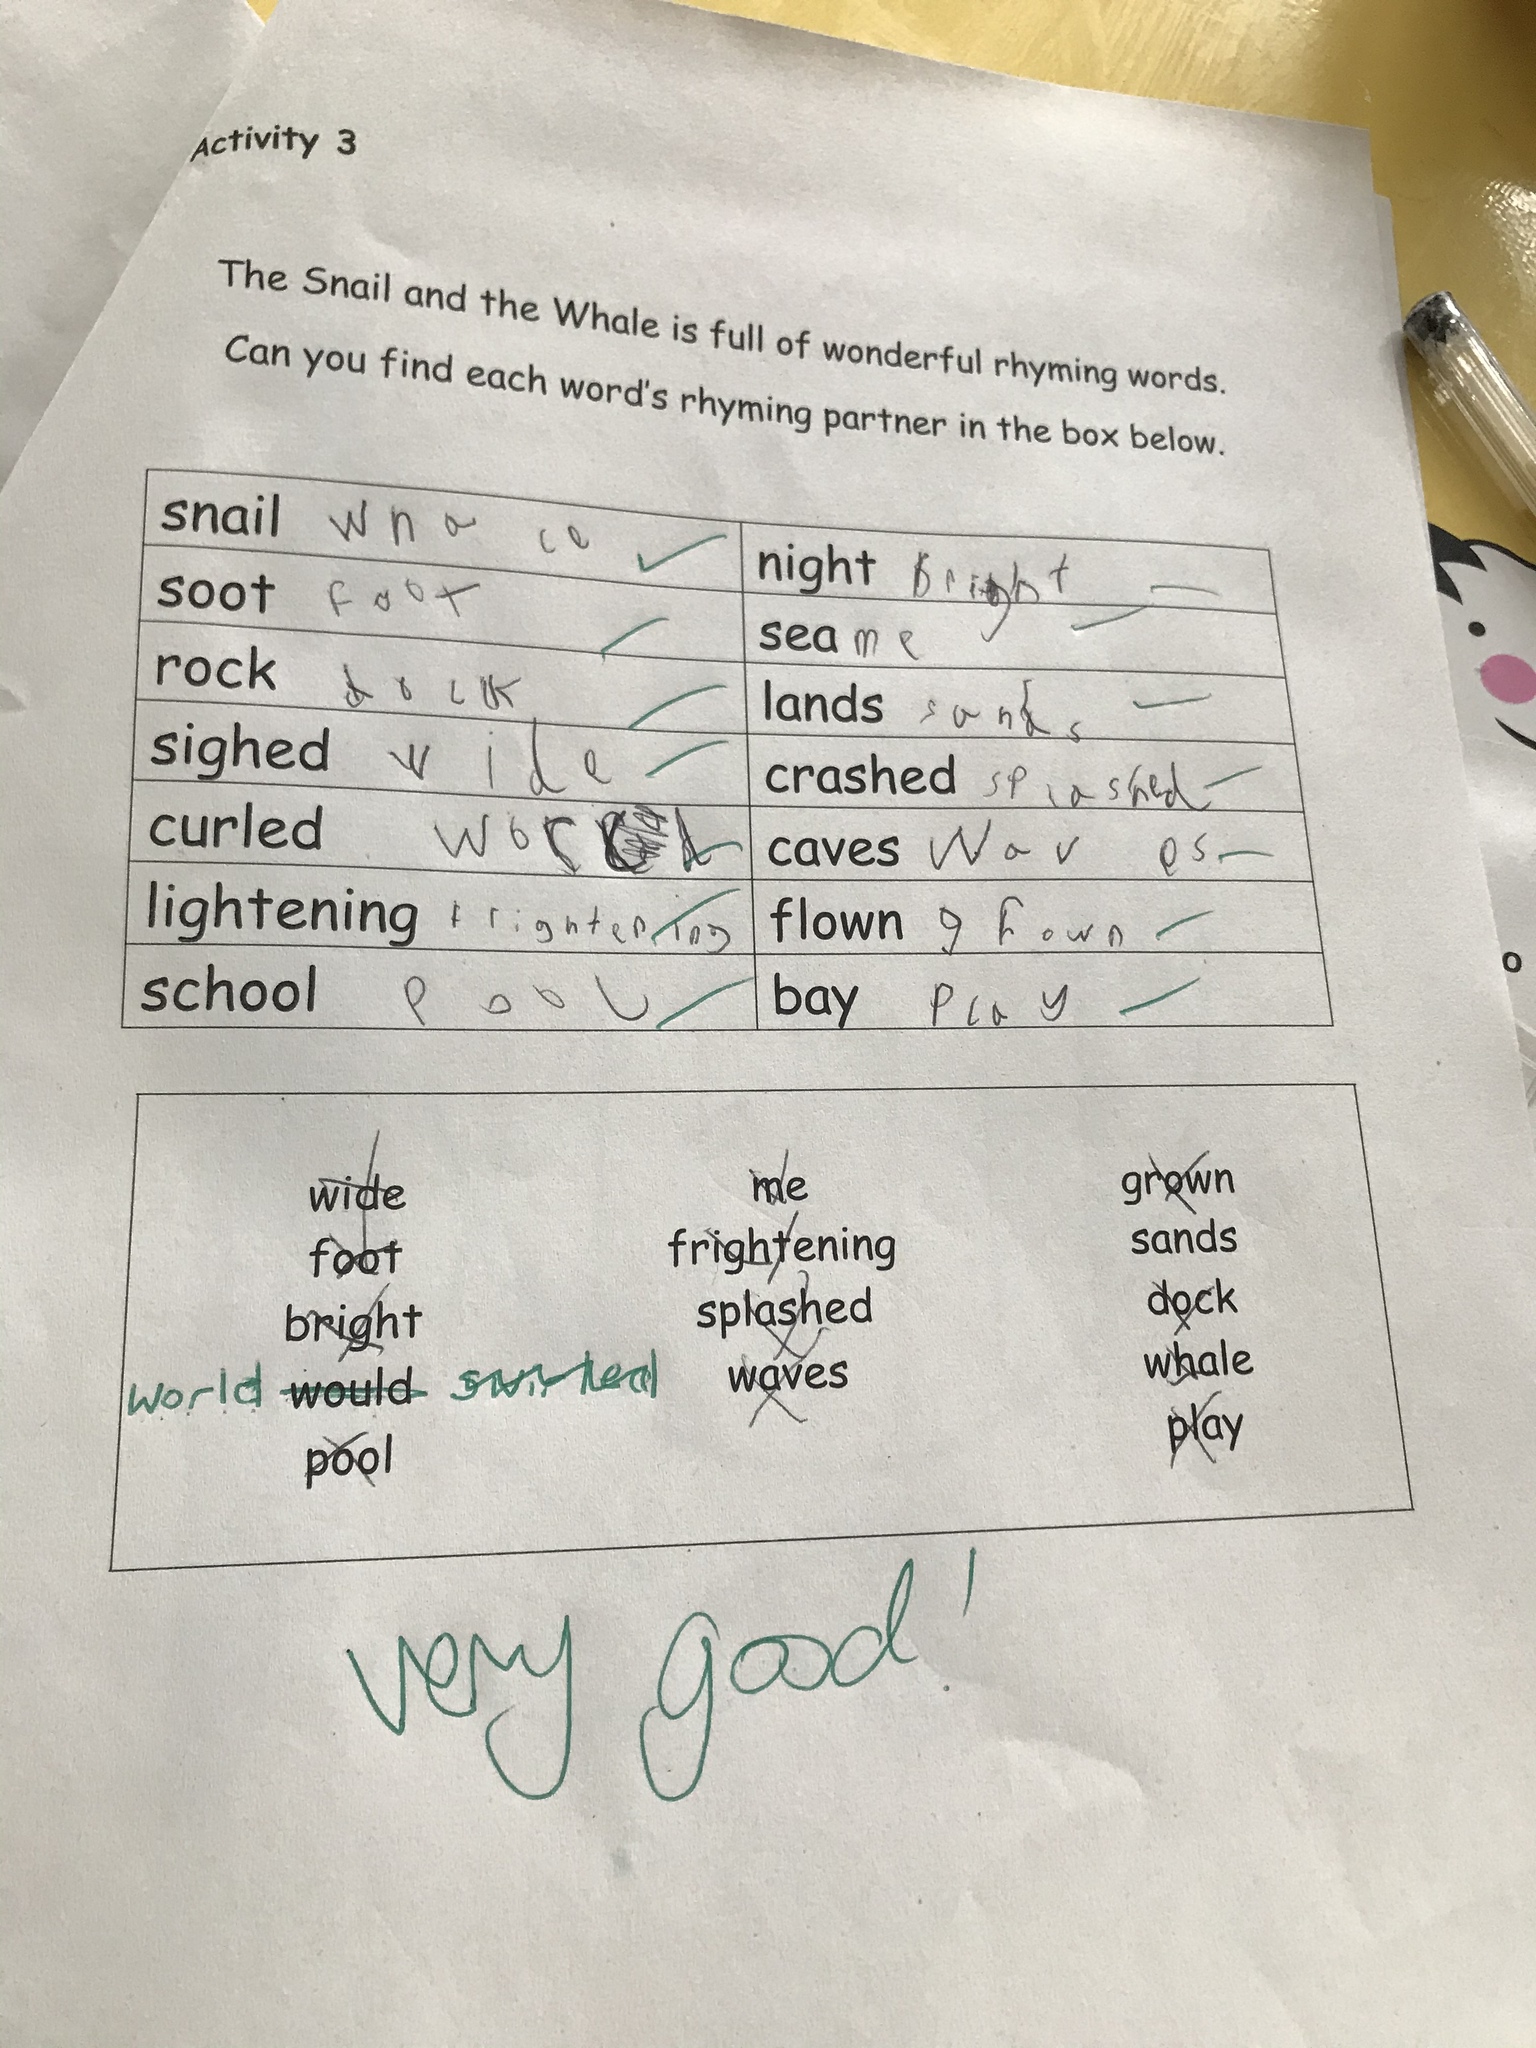 Activity 3
The Snail and the Whale is full of wonderful rhyming words.
Can you find each word's rhyming partner in the box below.
snail whale
night bright
soot foot
sea me
rock dock
lands sands
sighed wide
crashed splashed
curled world
caves waves
lightening frightening
flown grown
school pool
bay play
wide me grown
foot frightening sands
bright splashed dock
world would swirled waves whale
pool play
very good!
o